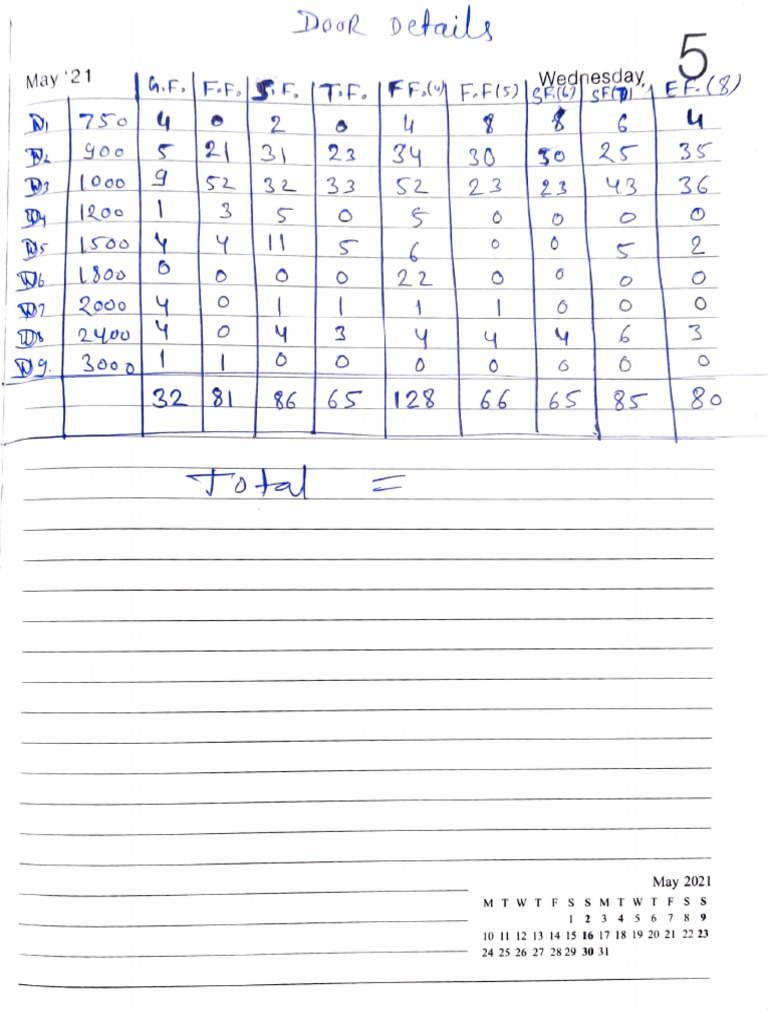 DOOR Details
May '21 Wednesday, 5
G.F. F.F. S.F. T.F. FF.(4) F.F(5) SF.(6) SF(7) EF.(8)
D1 750 4 0 2 0 4 8 8 6 4
D2 900 5 21 31 23 34 30 30 25 35
D3 1000 9 52 32 33 52 23 23 43 36
D4 1200 1 3 5 0 5 0 0 0 0
D5 1500 4 4 11 5 6 0 0 5 2
D6 1800 0 0 0 0 22 0 0 0 0
D7 2000 4 0 1 1 1 1 0 0 0
D8 2400 4 0 4 3 4 4 4 6 3
D9. 3000 1 1 0 0 0 0 0 0 0
32 81 86 65 128 66 65 85 80
Total =
May 2021
M T W T F S S M T W T F S S
1 2 3 4 5 6 7 8 9
10 11 12 13 14 15 16 17 18 19 20 21 22 23
24 25 26 27 28 29 30 31